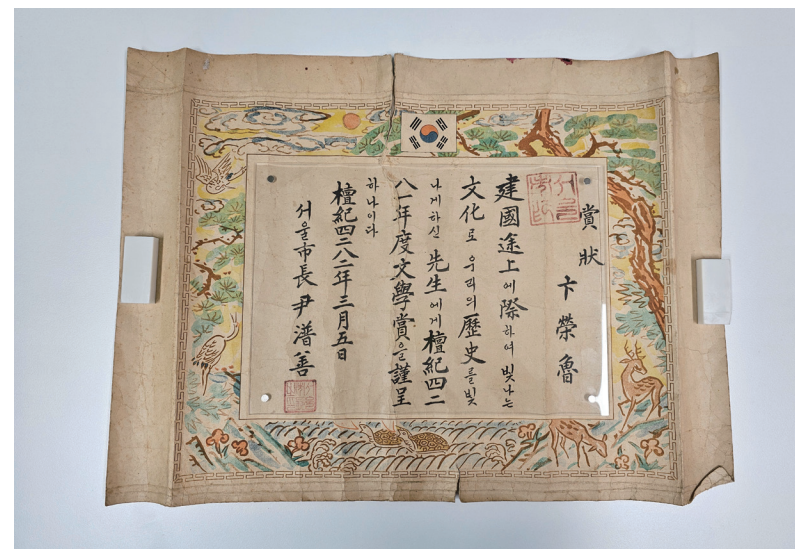 賞狀
卞榮魯
建國途上에際하여빛나는
文化로우리의歷史를빛
나게하신先生에게檀紀四二
八一年度文學賞을謹呈
하나이다
檀紀四二八二年三月五日
서울市長尹潽善